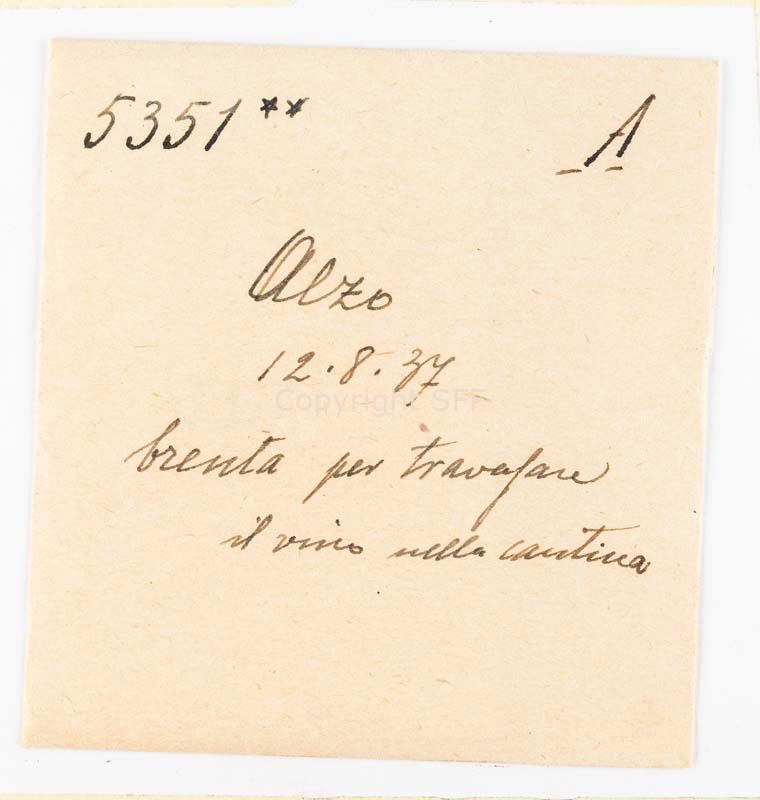 5351** A
Alzo
12.8.37
Copyright SFF
brenta per travasare
il vino nella cantina